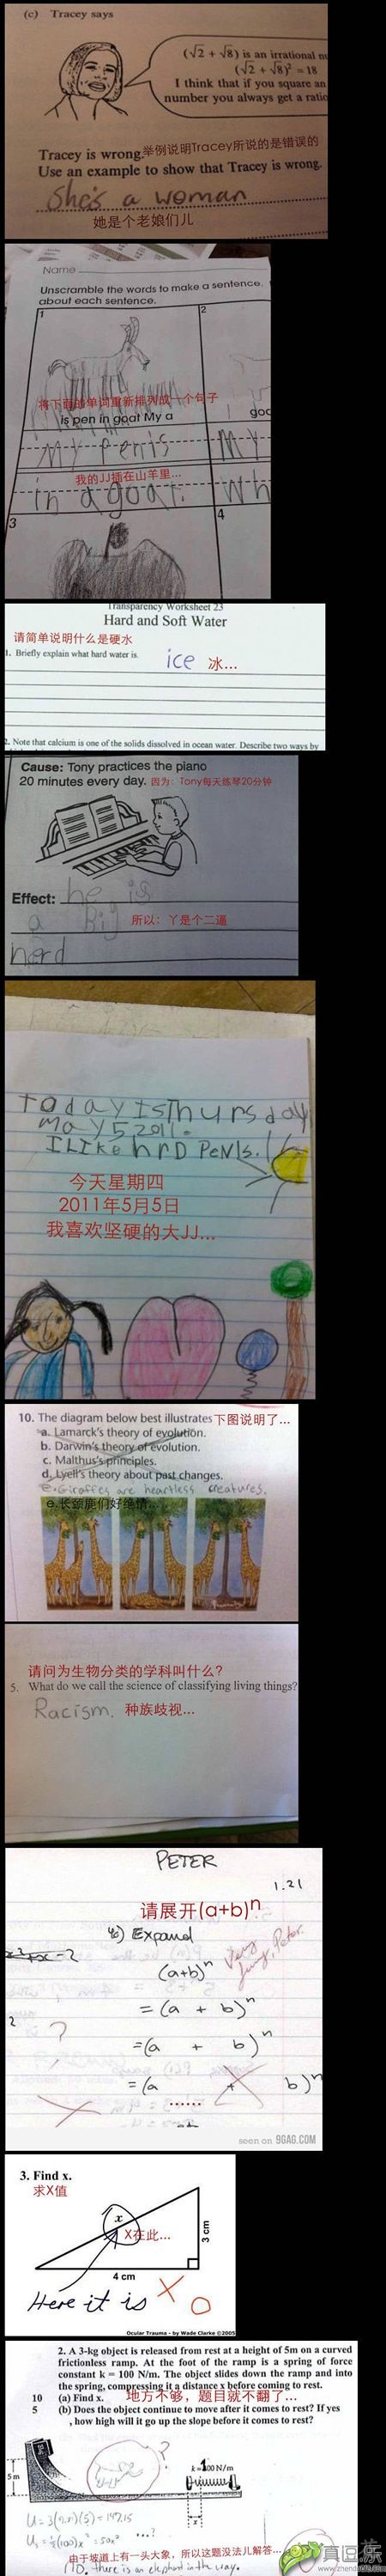 (c) Tracey says
(√2 + √8) is an irrational nu
(√2 + √8)² = 18
I think that if you square an
number you always get a ratio
Tracey is wrong. 举例说明Tracey所说的是错误的
Use an example to show that Tracey is wrong.
She's a woman
她是个老娘们儿
Name
Unscramble the words to make a sentence.
about each sentence.
1
2
将下面的单词重新排列成一个句子
is pen in goat My a
goo
My Penis
My
我的JJ插在山羊里...
in a goat.
Wh
3
4
Transparency Worksheet 23
Hard and Soft Water
请简单说明什么是硬水
1. Briefly explain what hard water is.
ice 冰...
2. Note that calcium is one of the solids dissolved in ocean water. Describe two ways by
Cause: Tony practices the piano
20 minutes every day. 因为：Tony每天练琴20分钟
Effect: he is
a Big
所以：丫是个二逼
nerd
today is Thursday
may 5 2011.
I LIKe hrD PeNIs.
今天星期四
2011年5月5日
我喜欢坚硬的大JJ...
10. The diagram below best illustrates 下图说明了...
a. Lamarck's theory of evolution.
b. Darwin's theory of evolution.
c. Malthus's principles.
d. Lyell's theory about past changes.
e. Giraffes are heartless creatures.
e.长颈鹿们好绝情...
请问为生物分类的学科叫什么?
5. What do we call the science of classifying living things?
Racism. 种族歧视...
PETER
1.21
请展开(a+b)ⁿ
b) Expand
(a+b)ⁿ
Very funny, Peter.
= (a + b)ⁿ
?
= (a + b)ⁿ
= (a + b)ⁿ
......
seen on 9GAG.COM
3. Find x.
求X值
x
X在此...
3 cm
4 cm
Here it is
X O
Ocular Trauma - by Wade Clarke ©2005
2. A 3-kg object is released from rest at a height of 5m on a curved
frictionless ramp. At the foot of the ramp is a spring of force
constant k = 100 N/m. The object slides down the ramp and into
the spring, compressing it a distance x before coming to rest.
10 (a) Find x. 地方不够，题目就不翻了...
5 (b) Does the object continue to move after it comes to rest? If yes
, how high will it go up the slope before it comes to rest?
?
5 m
k = 100 N/m
x
...?
由于坡道上有一头大象，所以这题没法儿解答...
there is an elephant in the way.